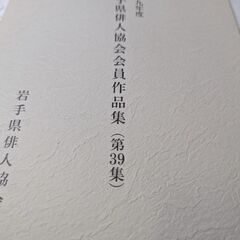 九年度
手県俳人協会会員作品集(第39集)
岩手県俳人協会